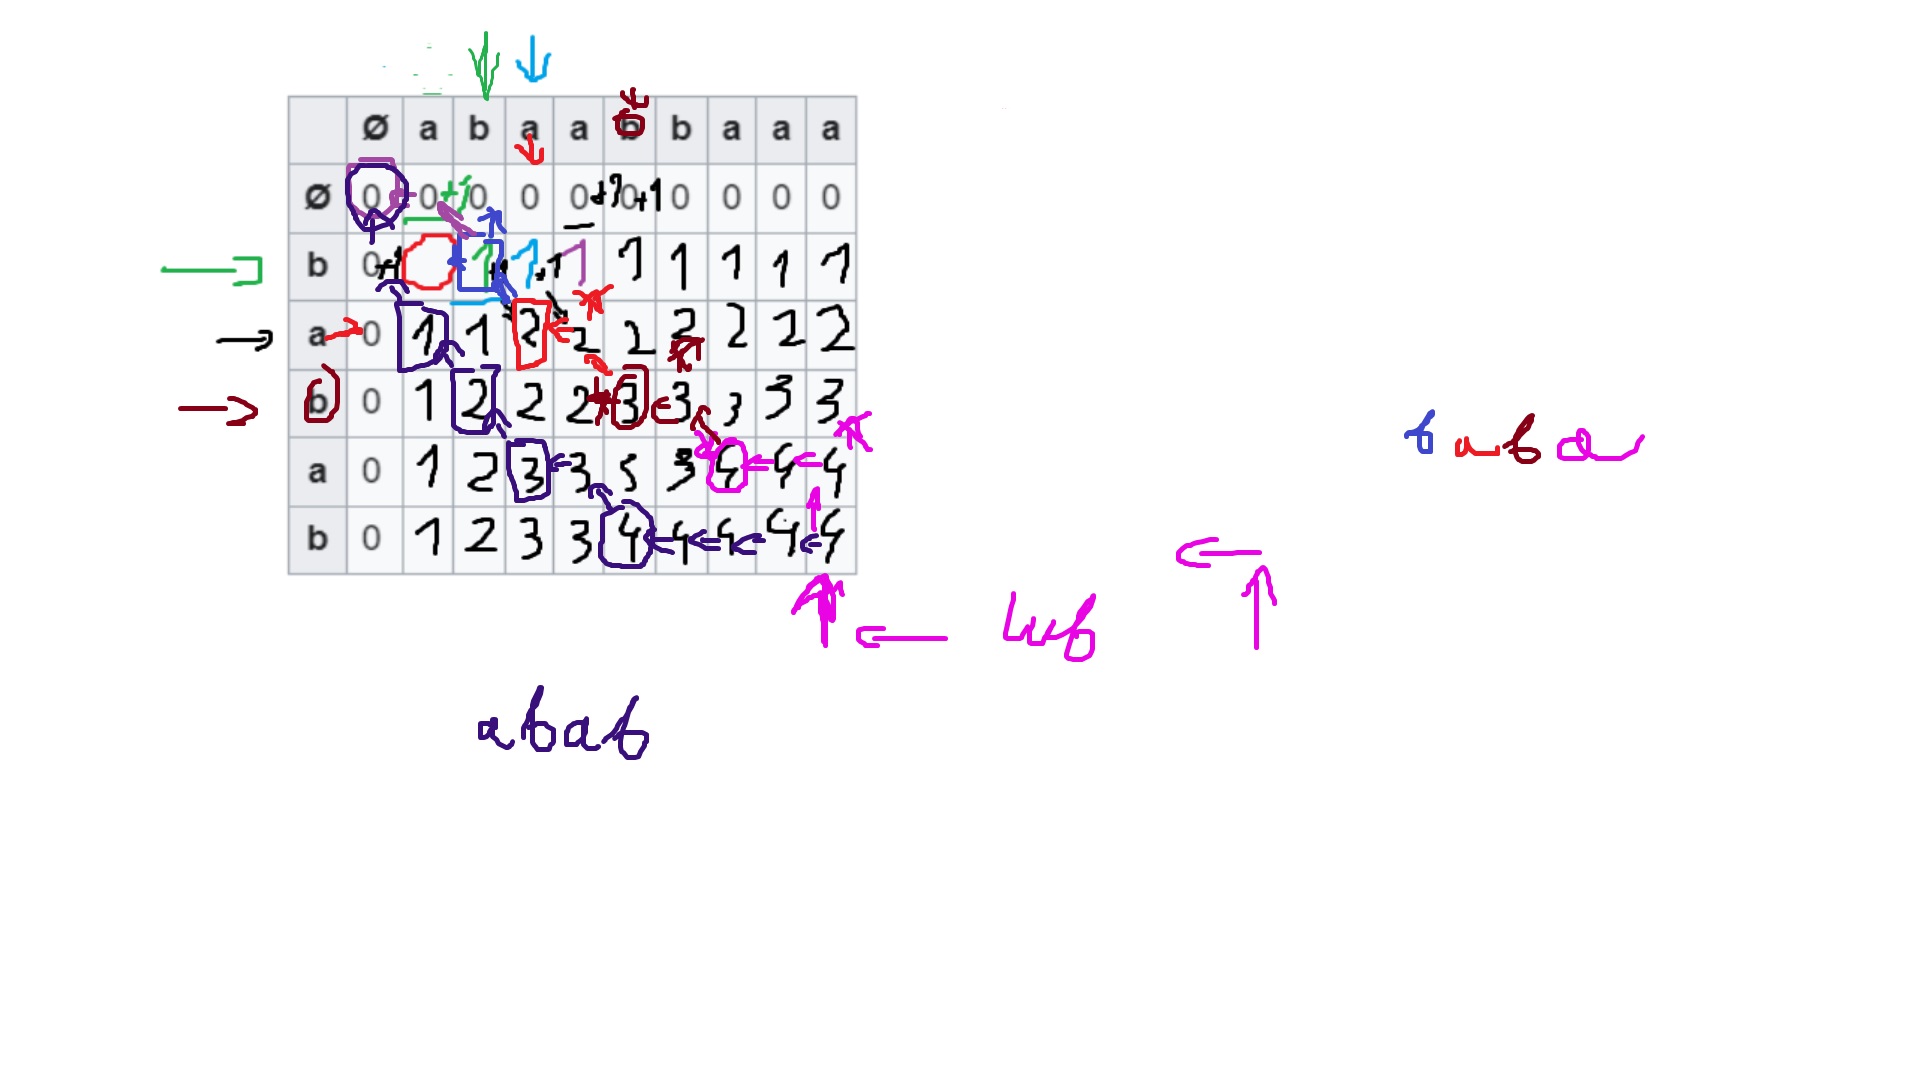 Ø a b a a b b a a a
Ø 0 0 +1 0 0 0 +1 0 +1 0 0 0 0
b 0 +1 1 +1 1 +1 1 1 1 1 1 1
a 0 1 1 2 2 2 2 2 2 2
b 0 1 2 2 2 3 3 3 3 3
a 0 1 2 3 3 3 4 4 4
b 0 1 2 3 3 4 4 4 4 4
baba
lub
abab